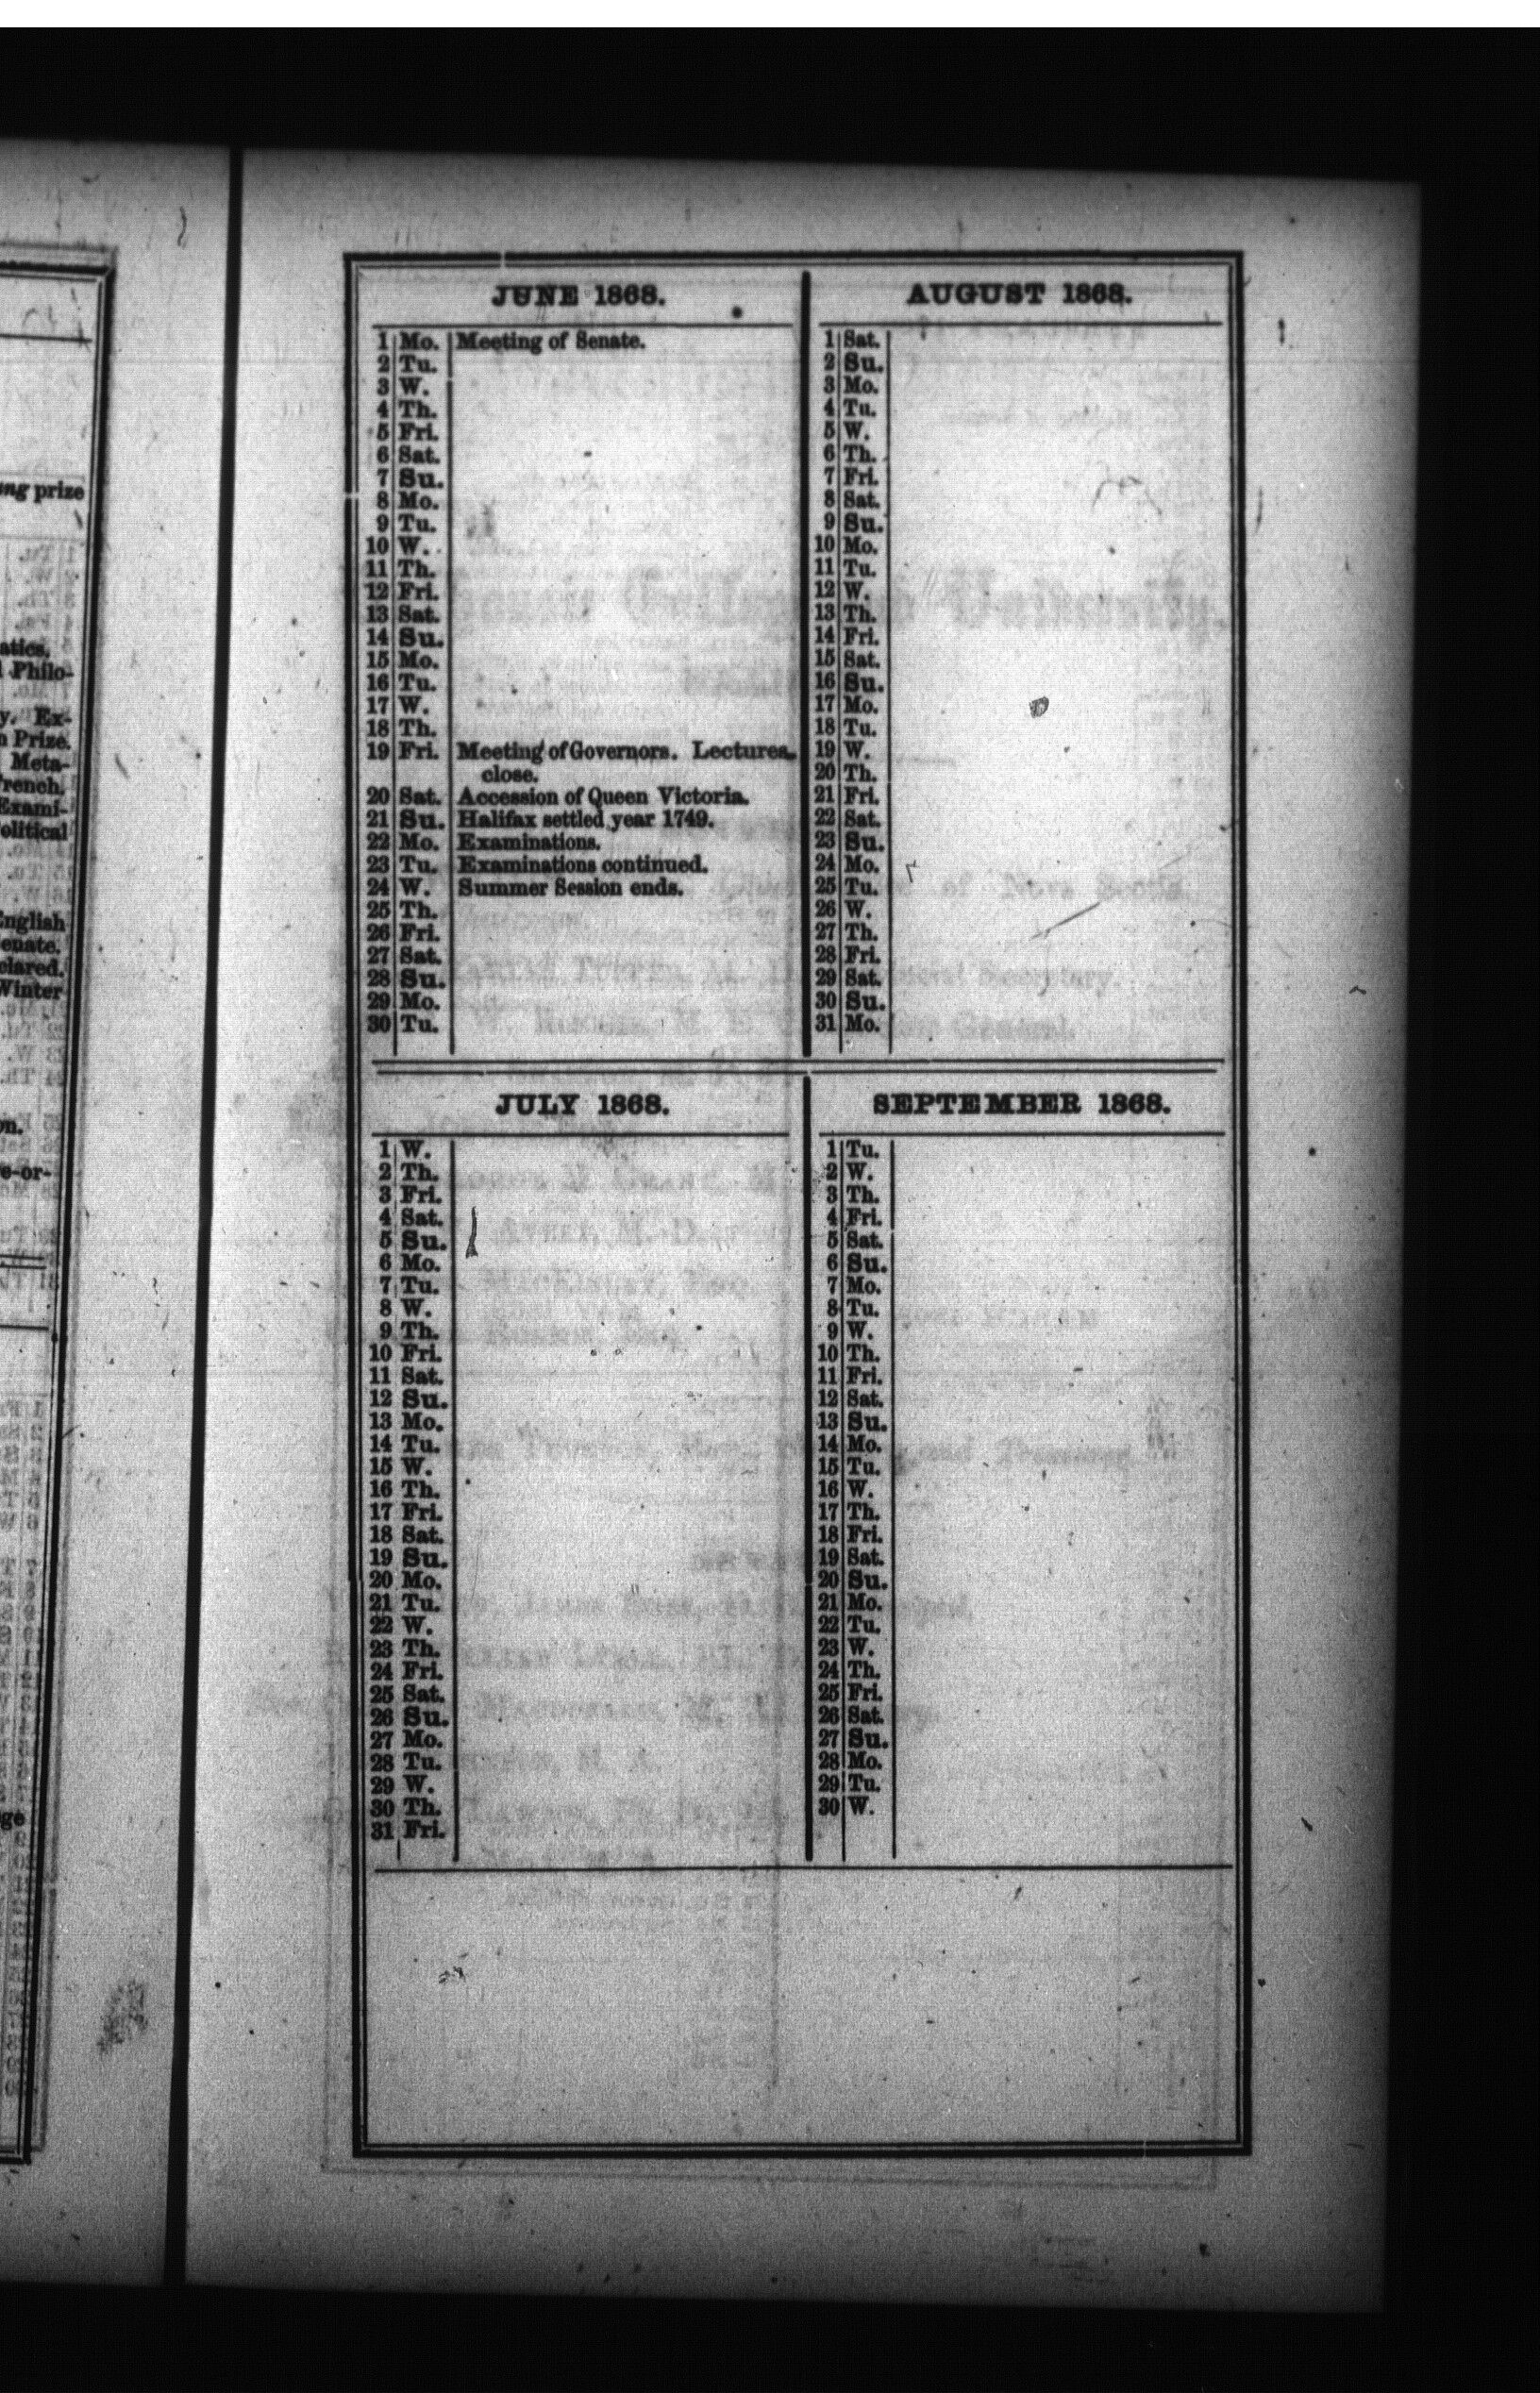 ung prize
atics.
Philo-
y. Ex-
n Prize.
Meta-
French.
Exami-
olitical
English
enate.
clared.
Winter
on.
e-or-
ge
JUNE 1868.
1 Mo. Meeting of Senate.
2 Tu.
3 W.
4 Th.
5 Fri.
6 Sat.
7 Su.
8 Mo.
9 Tu.
10 W.
11 Th.
12 Fri.
13 Sat.
14 Su.
15 Mo.
16 Tu.
17 W.
18 Th.
19 Fri. Meeting of Governors. Lectures
close.
20 Sat. Accession of Queen Victoria.
21 Su. Halifax settled year 1749.
22 Mo. Examinations.
23 Tu. Examinations continued.
24 W. Summer Session ends.
25 Th.
26 Fri.
27 Sat.
28 Su.
29 Mo.
30 Tu.
AUGUST 1868.
1 Sat.
2 Su.
3 Mo.
4 Tu.
5 W.
6 Th.
7 Fri.
8 Sat.
9 Su.
10 Mo.
11 Tu.
12 W.
13 Th.
14 Fri.
15 Sat.
16 Su.
17 Mo.
18 Tu.
19 W.
20 Th.
21 Fri.
22 Sat.
23 Su.
24 Mo.
25 Tu.
26 W.
27 Th.
28 Fri.
29 Sat.
30 Su.
31 Mo.
JULY 1868.
1 W.
2 Th.
3 Fri.
4 Sat.
5 Su.
6 Mo.
7 Tu.
8 W.
9 Th.
10 Fri.
11 Sat.
12 Su.
13 Mo.
14 Tu.
15 W.
16 Th.
17 Fri.
18 Sat.
19 Su.
20 Mo.
21 Tu.
22 W.
23 Th.
24 Fri.
25 Sat.
26 Su.
27 Mo.
28 Tu.
29 W.
30 Th.
31 Fri.
SEPTEMBER 1868.
1 Tu.
2 W.
3 Th.
4 Fri.
5 Sat.
6 Su.
7 Mo.
8 Tu.
9 W.
10 Th.
11 Fri.
12 Sat.
13 Su.
14 Mo.
15 Tu.
16 W.
17 Th.
18 Fri.
19 Sat.
20 Su.
21 Mo.
22 Tu.
23 W.
24 Th.
25 Fri.
26 Sat.
27 Su.
28 Mo.
29 Tu.
30 W.